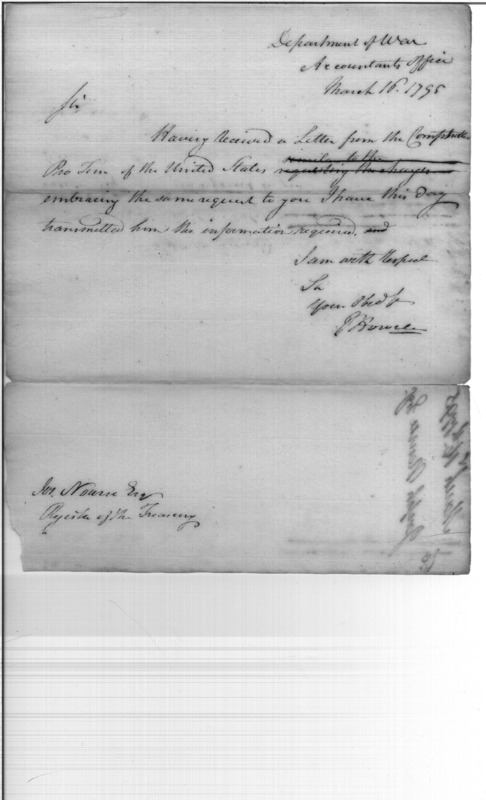 Department of War
Accountants Office
March 16. 1795
Sir
Having received a Letter from the Comptroller
similar to the
Pro Tem of the United States requesting the
embracing the same request to you I have this day
transmitted him the information required. and
I am with Respect
Sir
Your Obedt
J Howell
Jos. Nourse Esq
Register of the Treasury